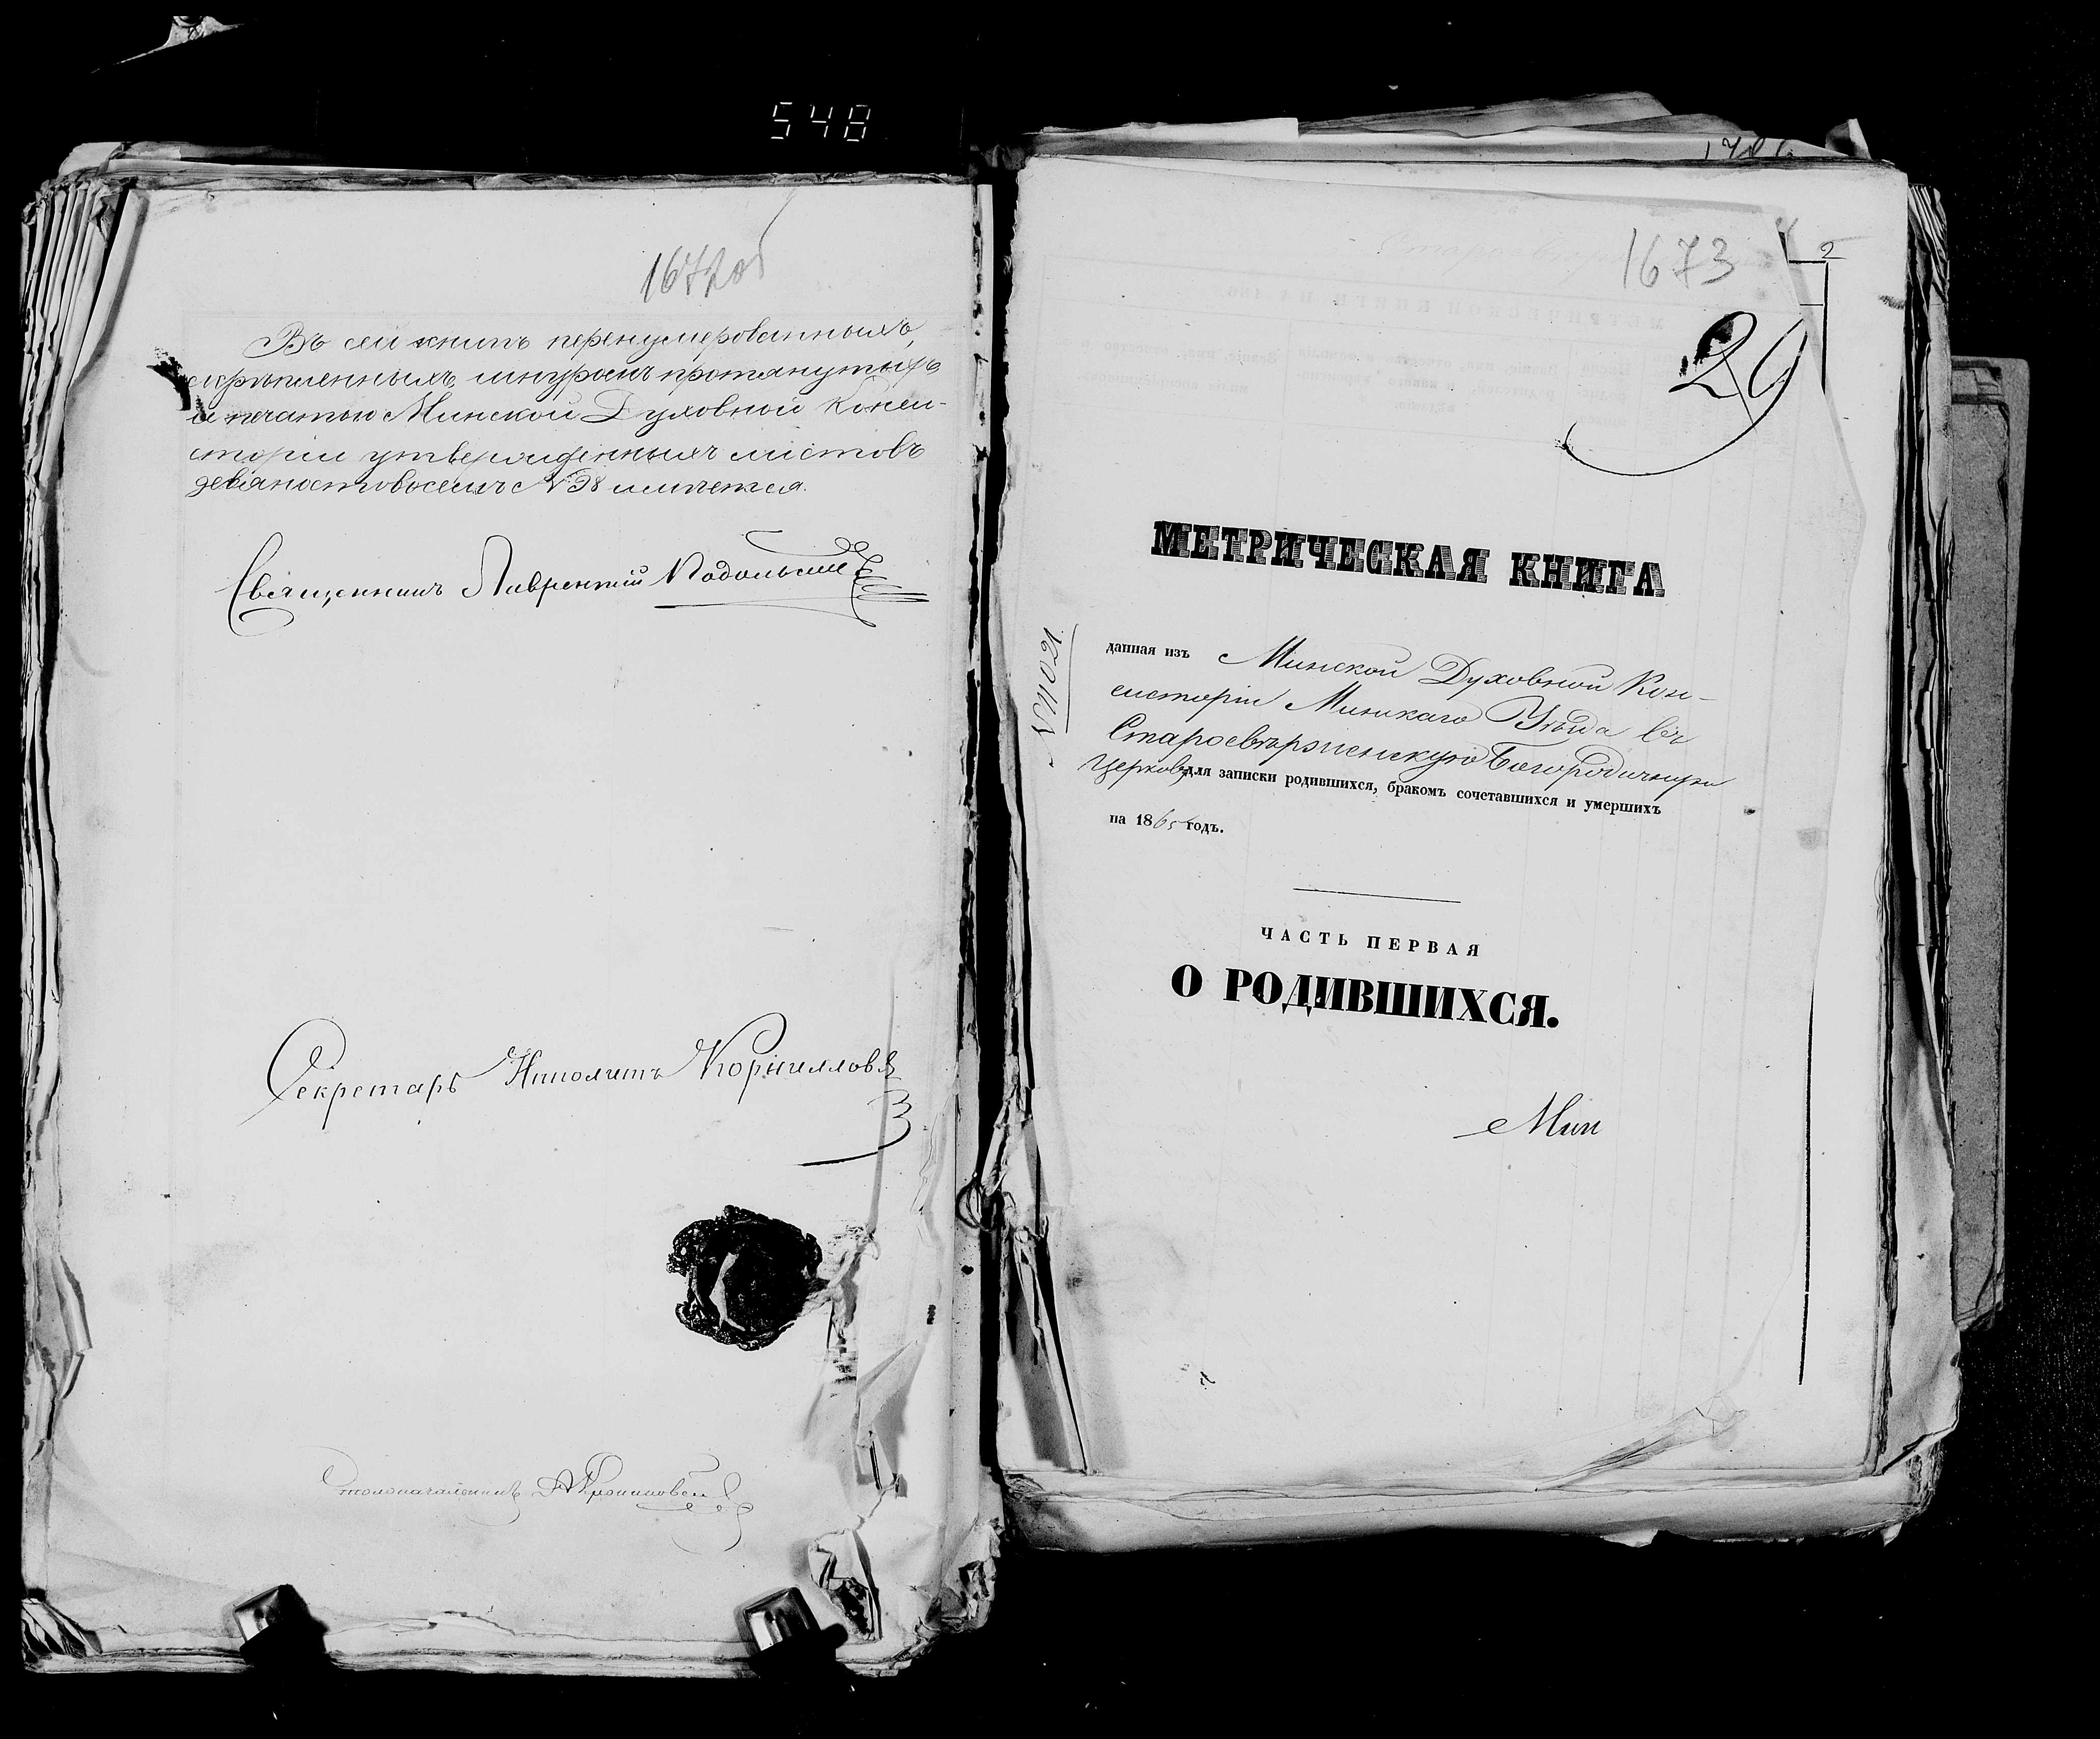 548
1672об
Въ сей книгѣ перенумерованныхъ,
скрѣпленныхъ, шнуромъ протянутыхъ
и печатью Минской Духовной Конси-
сторіи утвержденныхъ листовъ
девяностовосемь № 98 имѣется.
Священникъ Лаврентій Подольскій
Секретарь Иполитъ Корнилловъ
Столоначальникъ
1673
2
29
МЕТРИЧЕСКАЯ КНИГА
№ 11021
данная изъ Минской Духовной Кон-
систоріи Минскаго Уѣзда въ
Старосвержненскую Богородичную
Церковь для записки родившихся, бракомъ сочетавшихся и умершихъ
на 1865 годъ.
ЧАСТЬ ПЕРВАЯ
О РОДИВШИХСЯ.
Мин